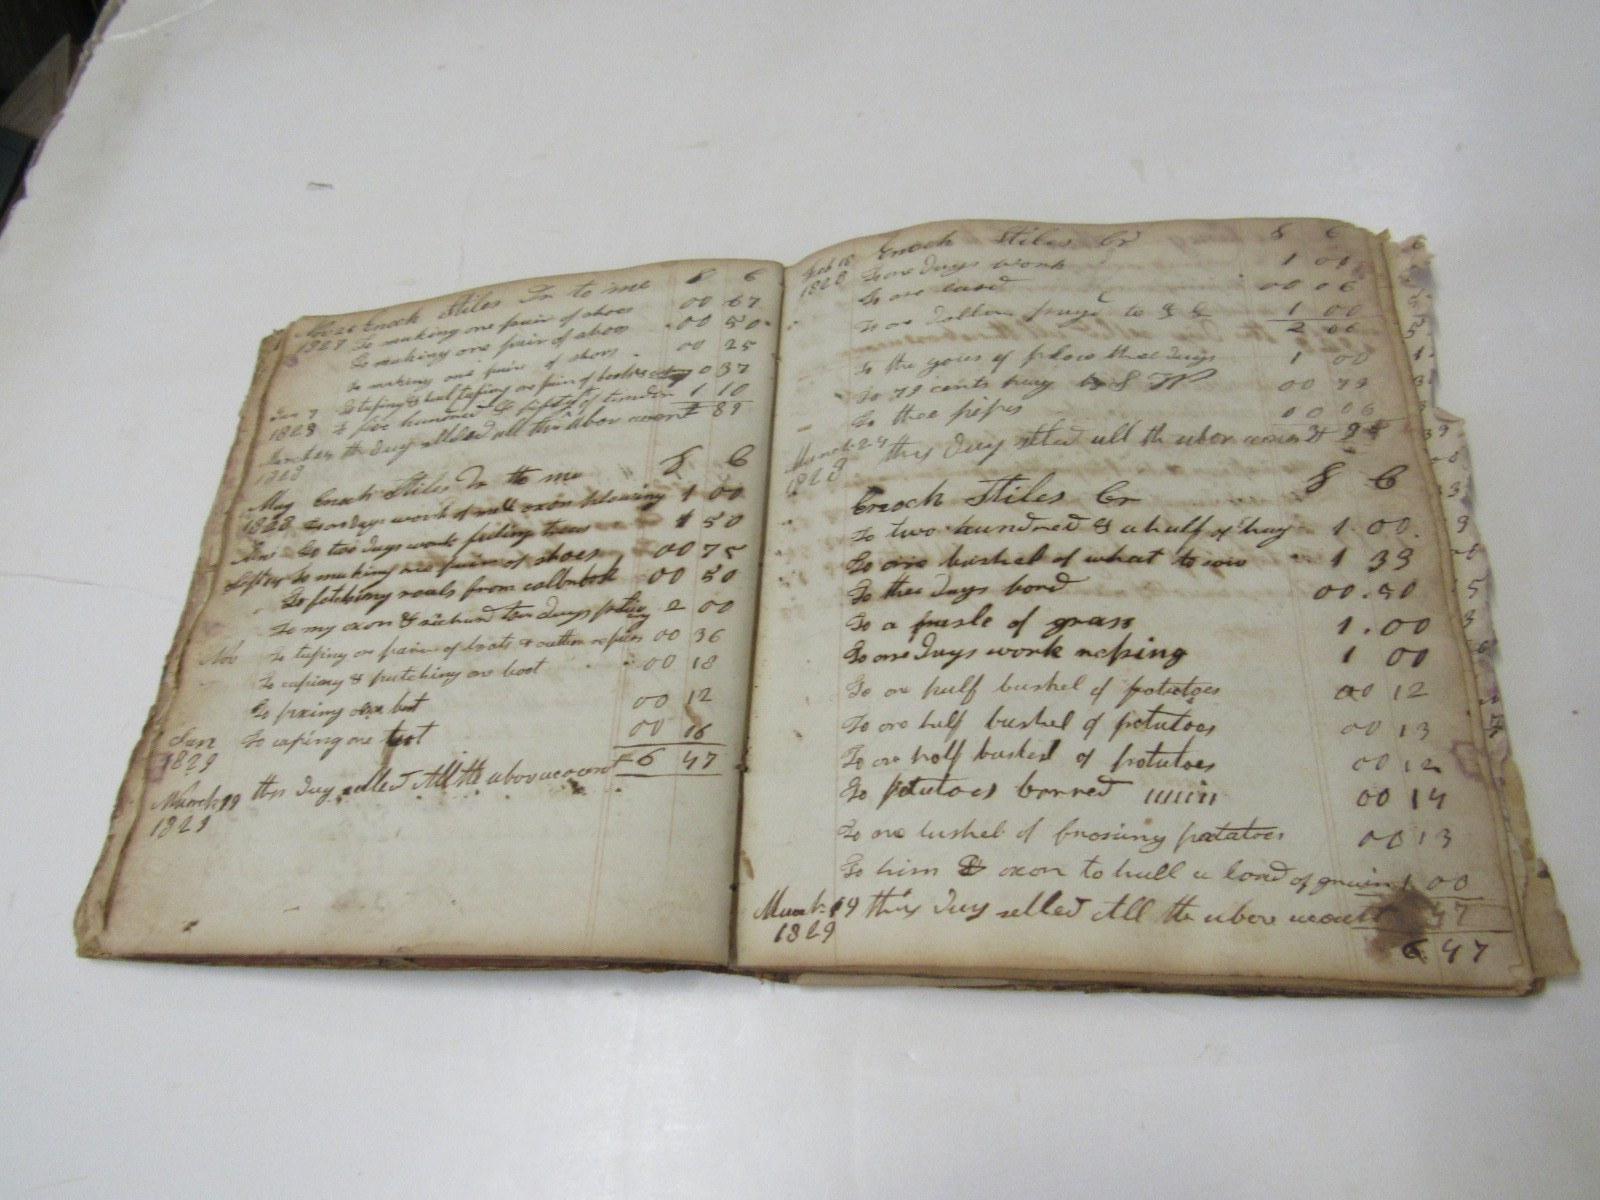 Enoch Stiles Dr to me $ C
1827 To making one pair of shoes 00 67
To making one pair of shoes 00 50
To making one pair of shoes 00 25
Jan 7 To taping & heal taping one pair of 0 37
1828 To five hundred & fifty of 1 10
March 24 this day setled all the abov acount 2 89
1828
May Enoch Stiles Dr to me $ C
1828 To one days work of me & oxon plowing 1 00
To two days work 1 50
Sept To making one pair of shoes 00 75
To fetching from 00 50
To my oxon & two days 2 00
Nov To taping one pair of boots & 00 36
To caping & patching one boot 00 18
To fixing one boot 00 12
Jan To caping one boot 00 16
1829 6 47
March 19 this day setled All the abov acount
1829
Feb 18 Enoch Stiles Cr $ C
1828 To one days work 1 00
To one 00 06
To one Dollar payd to 1 00
2 06
To the yous of plow thee days 1 00
To 79 cents payd by 00 79
To thee pipes 00 06
March 24 this day setled all the abov acount
1828
Enoch Stiles Cr $ C
To two hundred & a half of hay 1.00
To one bushel of wheat to sow 1 33
To thee days bord 00.50
To a pasle of grass 1.00
To one days work reping 1 00
To one half bushel of potatoes 00 12
To one half bushel of potatoes 00 13
To one half bushel of potatoes 00 12
To potatoes borred 00 14
To one bushel of potatoes 00 13
To him & oxon to hall a load of grain 1 00
March 19 this day setled All the abov acount 47
1829 6 47